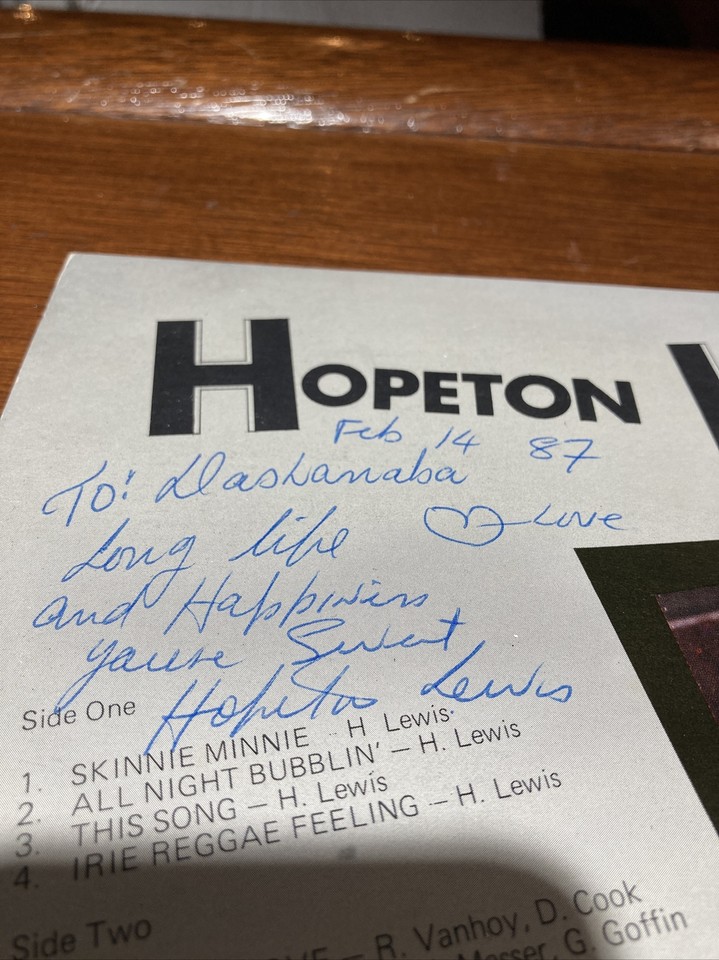 HOPETON
Feb 14 87
To: Dashanaba
Long life Love
and Happiness
you're Sweet
Hopeton Lewis
Side One
1. SKINNIE MINNIE - H Lewis.
2. ALL NIGHT BUBBLIN' – H. Lewis
3. THIS SONG – H. Lewis
4. IRIE REGGAE FEELING – H. Lewis
Side Two
– R. Vanhoy, D. Cook
G. Goffin